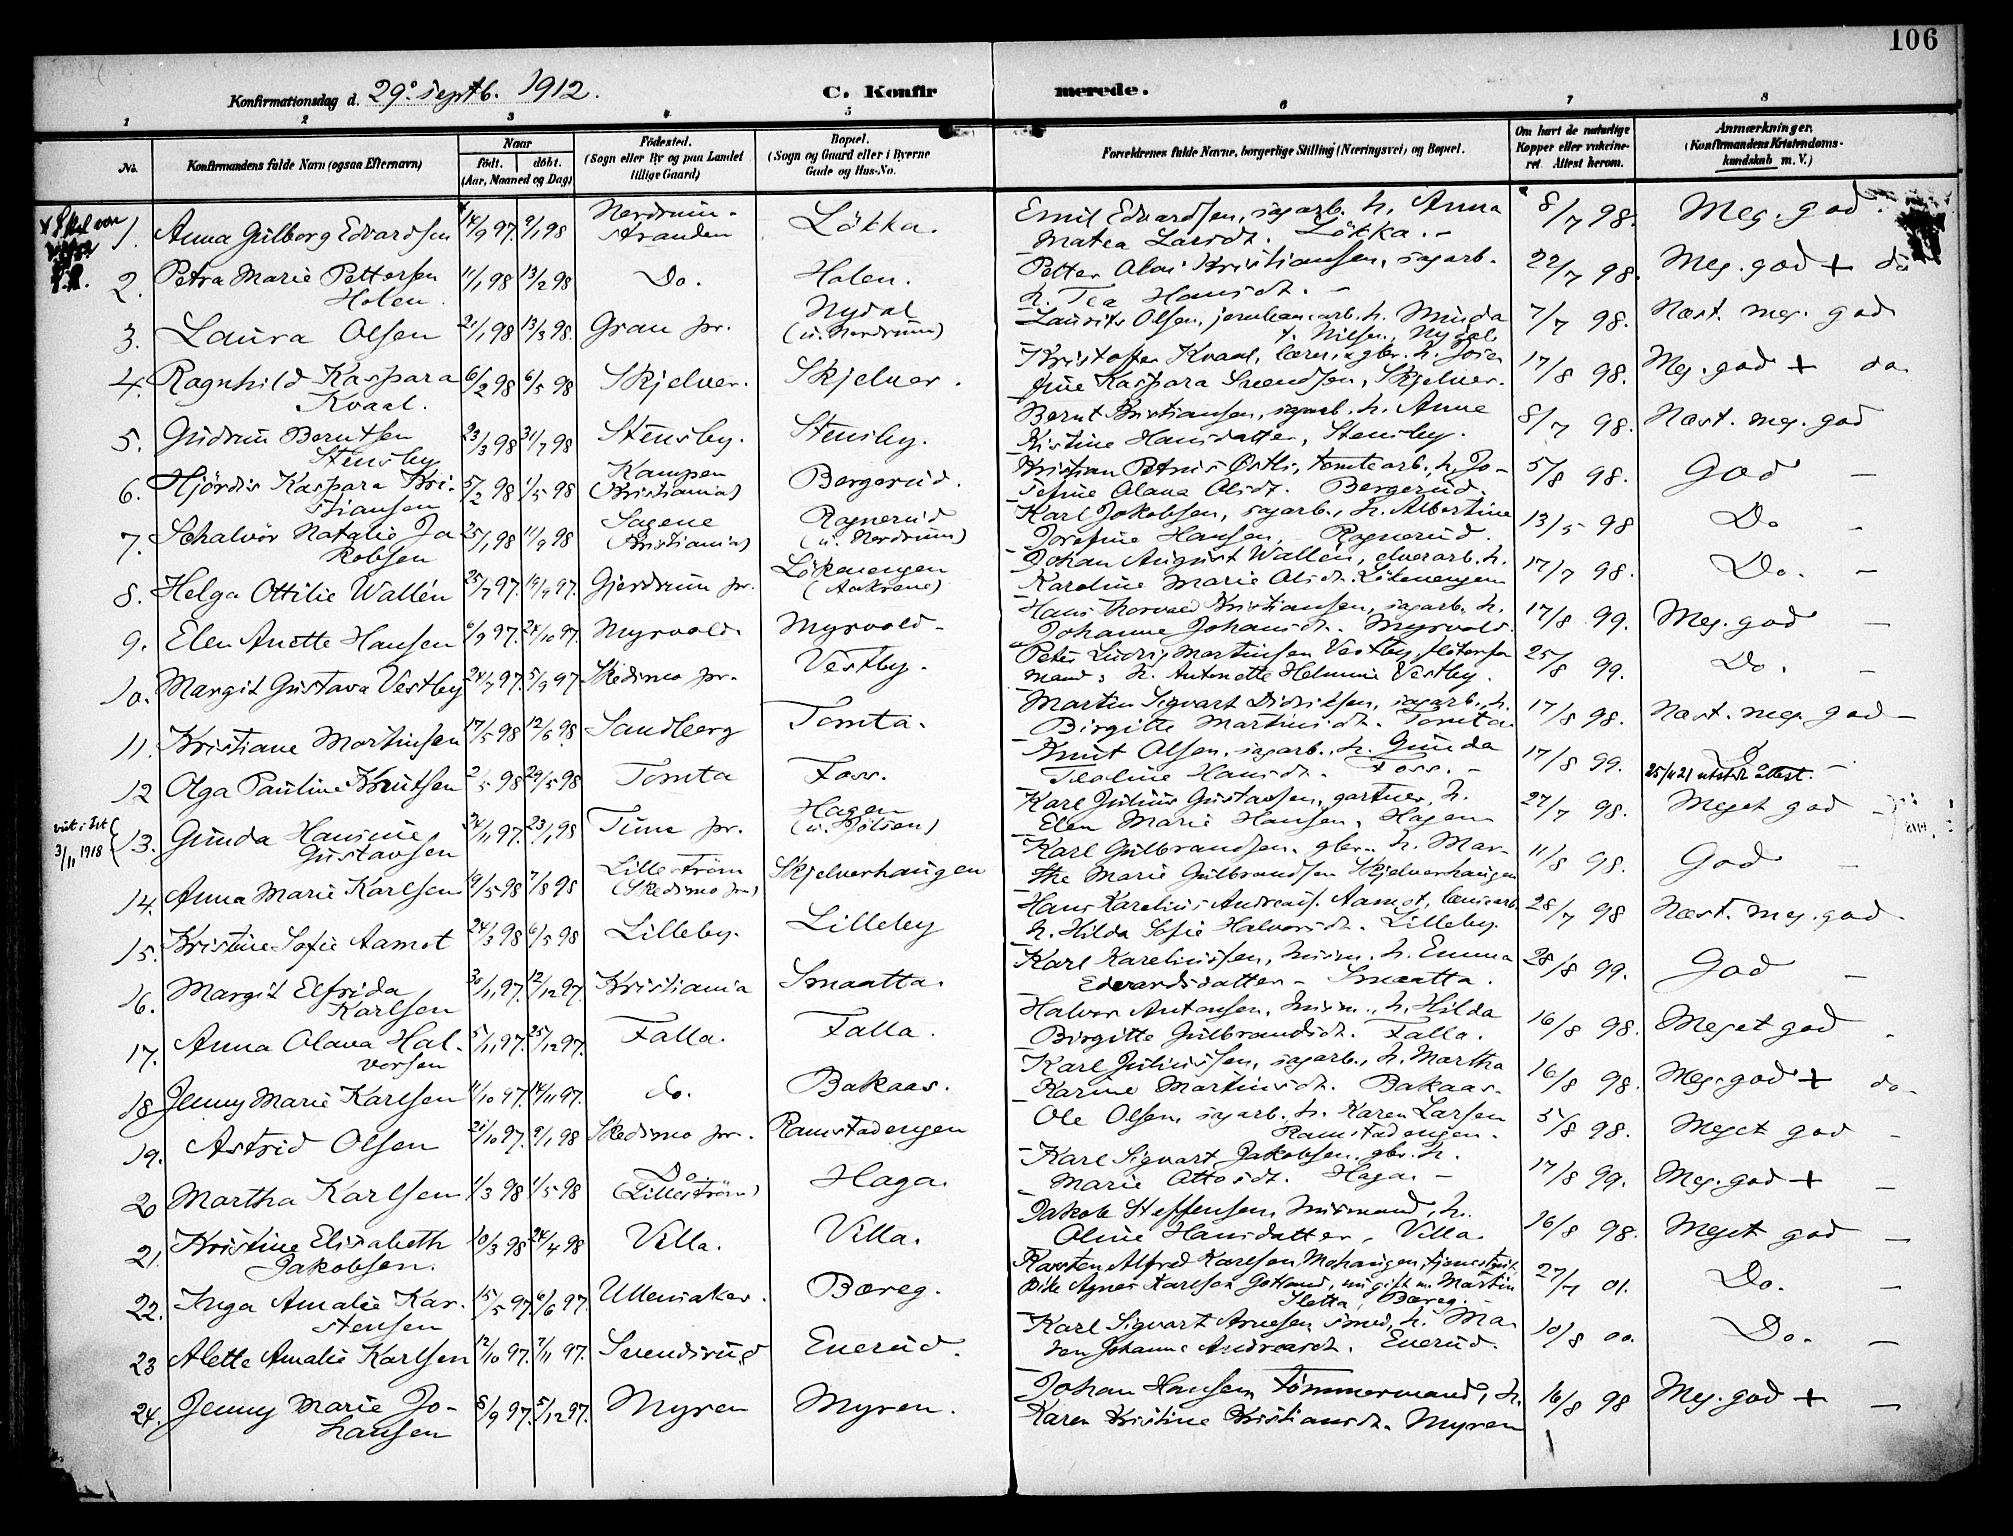 106
Konfirmationsdag d. 29. septb. 1912.
C. Konfirmerede.
1 2 3 4 5 6 7 8
No.
Konfirmandens fulde Navn (ogsaa Efternavn)
Naar
født. døbt.
(Aar, Maaned og Dag)
Fødested.
(Sogn eller By og paa Landet
tillige Gaard)
Bopæl.
(Sogn og Gaard eller i Byerne
Gade og Hus-No.
Forældrenes fulde Navne, borgerlige Stilling (Næringsvei) og Bopæl.
Om havt de naturlige
Kopper eller vakcine-
ret. Attest herom.
Anmærkninger.
(Konfirmandens Kristendoms-
kundskab m. V.)
1. Anna Gulborg Edvardsen 14/9 97. 9/1 98 Nerdrum-
stranden Løkka. Emil Edvardsen, sagarb. h. Anna
Matea Larsdt. Løkka. 8/7 98. Meg. god.
2. Petra Marie Pettersen
Holen. 11/1 98 13/2 98 Do. Holen. Petter Olai Kristiansen, sagarb.
h. Tea Hansdt. 22/7 98. Meg. god + do
3. Laura Olsen 21/1 98 13/3 98. Gran pr. Nydal
(u. Nerdrum) Laurits Olsen, jernbanearb. h. Minda
Nilsen, Nydal 7/7 98. Næst. meg. god
4. Ragnhild Kaspara
Kvaal. 6/2 98 6/5 98 Skjelver. Skjelver. Kristoffer Kvaal, lærer, gbr. h. Jose-
fine Kaspara Svendsen, Skjelver. 17/8 98. Meg. god + do
5. Gudrun Berntsen
Stensby 23/3 98 31/7 98 Stensby. Stensby. Bernt Kristiansen, sagarb. h. Anne
Kistine Hansdatter, Stensby. 8/7 98. Næst. meg. god
6. Hjördis Kaspara Kri-
stiansen 5/2 98 1/5 98 Kampen
(Kristiania) Bergerud. Kristian Petrus Østli, tomtearb. h. Jo-
sefine Olava Olsdt. Bergerud. 5/8 98. God –
7. Schalvör Natalie Ja
kobsen 25/1 98 11/9 98 Sagene
(Kristiania) Ragnerud
(u. Nerdrum) Karl Jakobsen, sagarb., h. Albertine
Josefine Hansen, Ragnerud. 13/5 98 Do –
8. Helga Ottilie Wallén 25/7 97. 19/9 97. Gjerdrum pr. Løkenengen
(Aakrene) Johan August Wallén, elverarb. h.
Karoline Marie Olsdt. Løkenengen 17/7 98. Do. –
9. Elen Anette Hansen 6/9 97. 24/10 97. Myrvold. Myrvold. Hans Thorvald Kristiansen, sagarb. h.
Johanne Johansdt. Myrvold. 17/8 99. Meg. god –
10. Margit Gustava Vestby 24/7 97. 5/9 97 Skedsmo pr. Vestby. Peter Ludvig Martinsen Vestby, fløterfor-
mand, h. Antonette Helmine Vestby. 25/8 99. Do. –
11. Kristiane Martinsen 17/5 98 12/6 98. Sandberg Tomta. Martin Sigvart Didriksen, sagarb. h.
Birgitte Martinsdt. Tomta. 17/8 98. Næst. meg. god –
12 Olga Pauline Knutsen 2/5 98 29/5 98 Tomta Foss. Knut Olsen, sagarb., h. Gunda
Teoline Hansdt. Foss. 17/8 99. Do –
25/4 21 utstdt attest.
3/11 1918
13. Gunda Hansine
Gustavsen 30/11 97. 23/1 98 Tune pr. Hagen Karl Julius Gustavsen, gartner, h.
Elen Marie Hansen, Hagen 27/7 98. Meget god –
14. Anna Marie Karlsen 19/5 98 7/8 98 Lillestrøm
(Skedsmo pr.) Skjelverhaugen Karl Gulbrandsen, gbr. h. Mar-
the Marie Gulbrandsen Skjelverhaugen 11/8 98. God –
15. Kristine Sofie Aamot 24/3 98 6/5 98 Lilleby. Lilleby Hans Karelius Andreas. Aamot, landarb.
h. Hilda Sofie Halvorsdt. Lilleby. 28/7 98 Næst. meg. god
16. Margit Elfrida
Karlsen 30/11 97. 12/12 97. Kristiania Smaatta. Karl Kareliussen, murm. h. Emma
Edvardsdatter - Smaatta. 28/8 99. God –
17. Anna Olava Hal-
vorsen 5/11 97. 25/12 97. Falla. Falla. Halvor Antonsen, murm., h. Hilda
Birgitte Gulbrandsdt. Falla. 16/8 98. Meget god
18 Jenny Marie Karlsen 11/10 97. 14/11 97. do. Bakaas. Karl Juliussen, sagarb., h. Martha
Karine Martinsdt. Bakaas. 16/8 98. Meg. god + do
19. Astrid Olsen 21/10 97. 9/1 98 Skedsmo pr. Ramstadengen Ole Olsen, sagarb. h. Karen Larsen
Ramstadengen. 5/8 98. Meget god –
20 Martha Karlsen 1/3 98 1/5 98 Do
(Lillestrøm) Haga. Karl Sigvart Jakobsen, gbr. h.
Marie Ottosdt. Haga. – 17/8 99. Meg. god + –
21. Kristine Elisabeth
Jakobsen. 10/3 98 24/4 98 Villa. Villa. Jakob Steffensen, murmand, h.
Oline Hansdatter, Villa. 16/8 98. Meget god –
22. Inga Amalie Kar-
stensen 15/5 97. 6/6 97. Ullensaker. Bæreg. Karsten Alfred Karlsen Mohaugen,
Pike Agnes Karlsen Gotland, nu gift m. Martin
Sletta, Bæreg. 27/7 01. Do. –
23 Alette Amalie Karlsen 12/10 97. 7/11 97. Svendsrud Enerud. Karl Sigvart Arnesen, smed, h. Ma-
ren Johanne Andreasdt. Enerud. 10/8 00. Do. –
24. Jenny Marie Jo-
hansen 8/9 97. 5/12 97. Myren Myren. Johan Hansen, Tømmermand, h.
Karen Kristine Kristiansdt. Myren 16/8 98 Meg. god + –